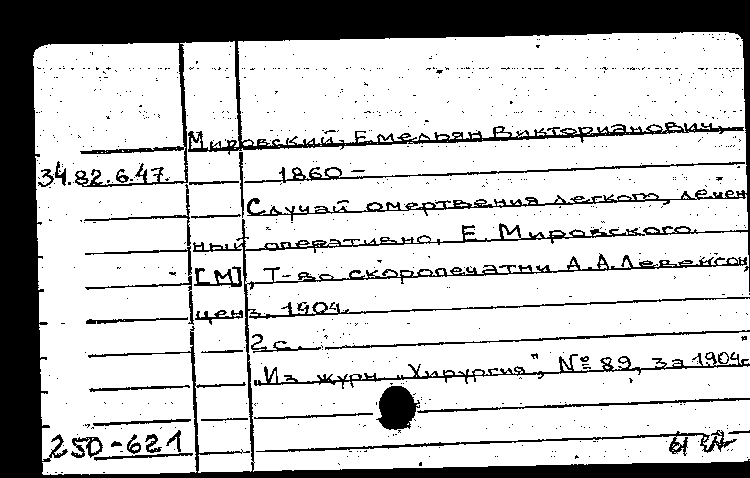 Мировский, Емельян Викторианович,
34.82.6.47. 1860 -
Случай омертвения легкого, лечен
ный оперативно, Е. Мировского.
[М], Т-во скоропечатни А.А.Левенсон,
ценз. 1904.
2 с.
„Из журн „Хирургия", № 89, за 1904г"
250-621 61